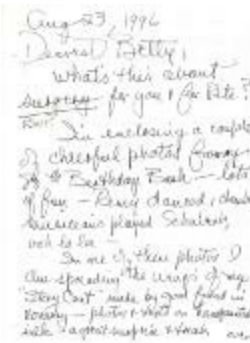 Aug 23, 1996
Dearest Betty,
What's this about
surgery for you & for Pete?
I'm enclosing a couple
of cheerful photos from
Birthday Bash - lots
of fun - Remy danced,
musicians played Schubert,
ooh la la -
In one of these photos I
am spreading the wings of my
"Story Coat" made by good friend in
- photos & text on
silk - a great surprise &
over